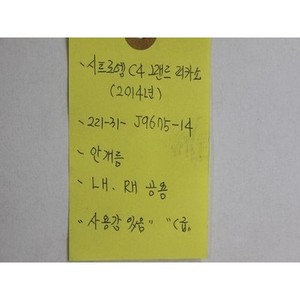 - 시트로엥 C4 그랜드 피카소
(2014년)
- 221-31- J9675-14
- 안개등
- LH. RH 공용
" 사용감 있음" "C급.